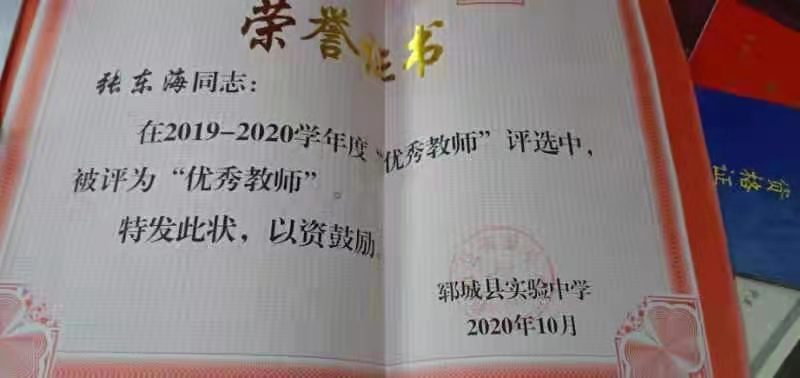 荣誉证书
张东海同志：
在2019-2020学年度“优秀教师”评选中，
被评为“优秀教师”。
特发此状，以资鼓励。
郓城县实验中学
2020年10月
资格证